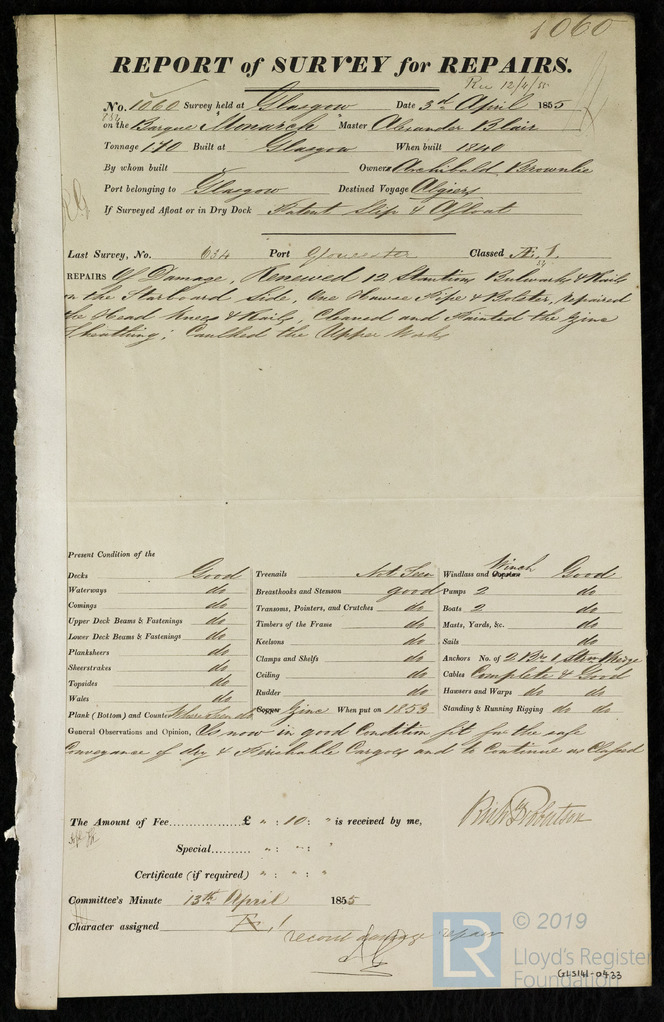 1060
REPORT of SURVEY for REPAIRS.
Rec 12/4/55
No. 1060 Survey held at Glasgow Date 3d April 1855
on the Barque "Monarch" Master Alexander Blair
Tonnage 170 Built at Glasgow When built 1840
By whom built Owners Archibald Brownlie
Port belonging to Glasgow Destined Voyage Algiers
If Surveyed Afloat or in Dry Dock Patent Slip & Afloat
Last Survey, No. 634 Port Gloucester Classed Æ.1.
REPAIRS Of Damage, Renewed 12 Stantions Bulwarks & Rails
on the Starboard Side, One Hawse Pipe & Bolster, repaired
the Head Knees & Rails, Cleaned and Painted the Zinc
Sheathing; Caulked the Upper Works
Present Condition of the
Decks Good
Waterways do
Comings do
Upper Deck Beams & Fastenings do
Lower Deck Beams & Fastenings do
Planksheers do
Sheerstrakes do
Topsides do
Wales do
Plank (Bottom) and Counter Where seen do
Treenails Not Seen
Breasthooks and Stemson good
Transoms, Pointers, and Crutches do
Timbers of the Frame do
Keelsons do
Clamps and Shelfs do
Ceiling do
Rudder do
Copper Zinc When put on 1853
Winch
Windlass and Capstan Good
Pumps 2 do
Boats 2 do
Masts, Yards, &c. do
Sails do
Anchors No. of 2 Br 1 Strm & Kedge
Cables Complete & Good
Hawsers and Warps do do
Standing & Running Rigging do do
General Observations and Opinion, Is now in good Condition fit for the safe
Conveyance of dry & Perishable Cargoes and to Continue as Classed
The Amount of Fee £ " : 10 : " is received by me,
Special " : " : "
Certificate (if required) " : " : "
Committee's Minute 13th April 1855
Character assigned Æ 1
record damage repair
© 2019
LR
Lloyd's Register
Foundation
GLS141-0433